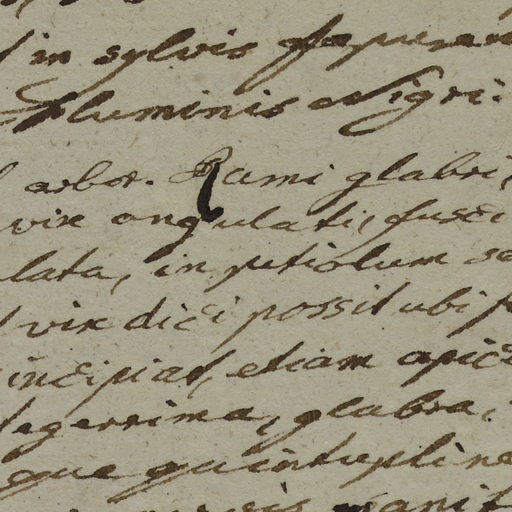 in sylvis Japurens
Fluminis Nigri.
arbor. Rami glabri,
vix angulati, fusci
lata, in petiolum se
vix dici possit ubi p
incipiat, etiam apice
tegerrima, glabra,
que quintupline